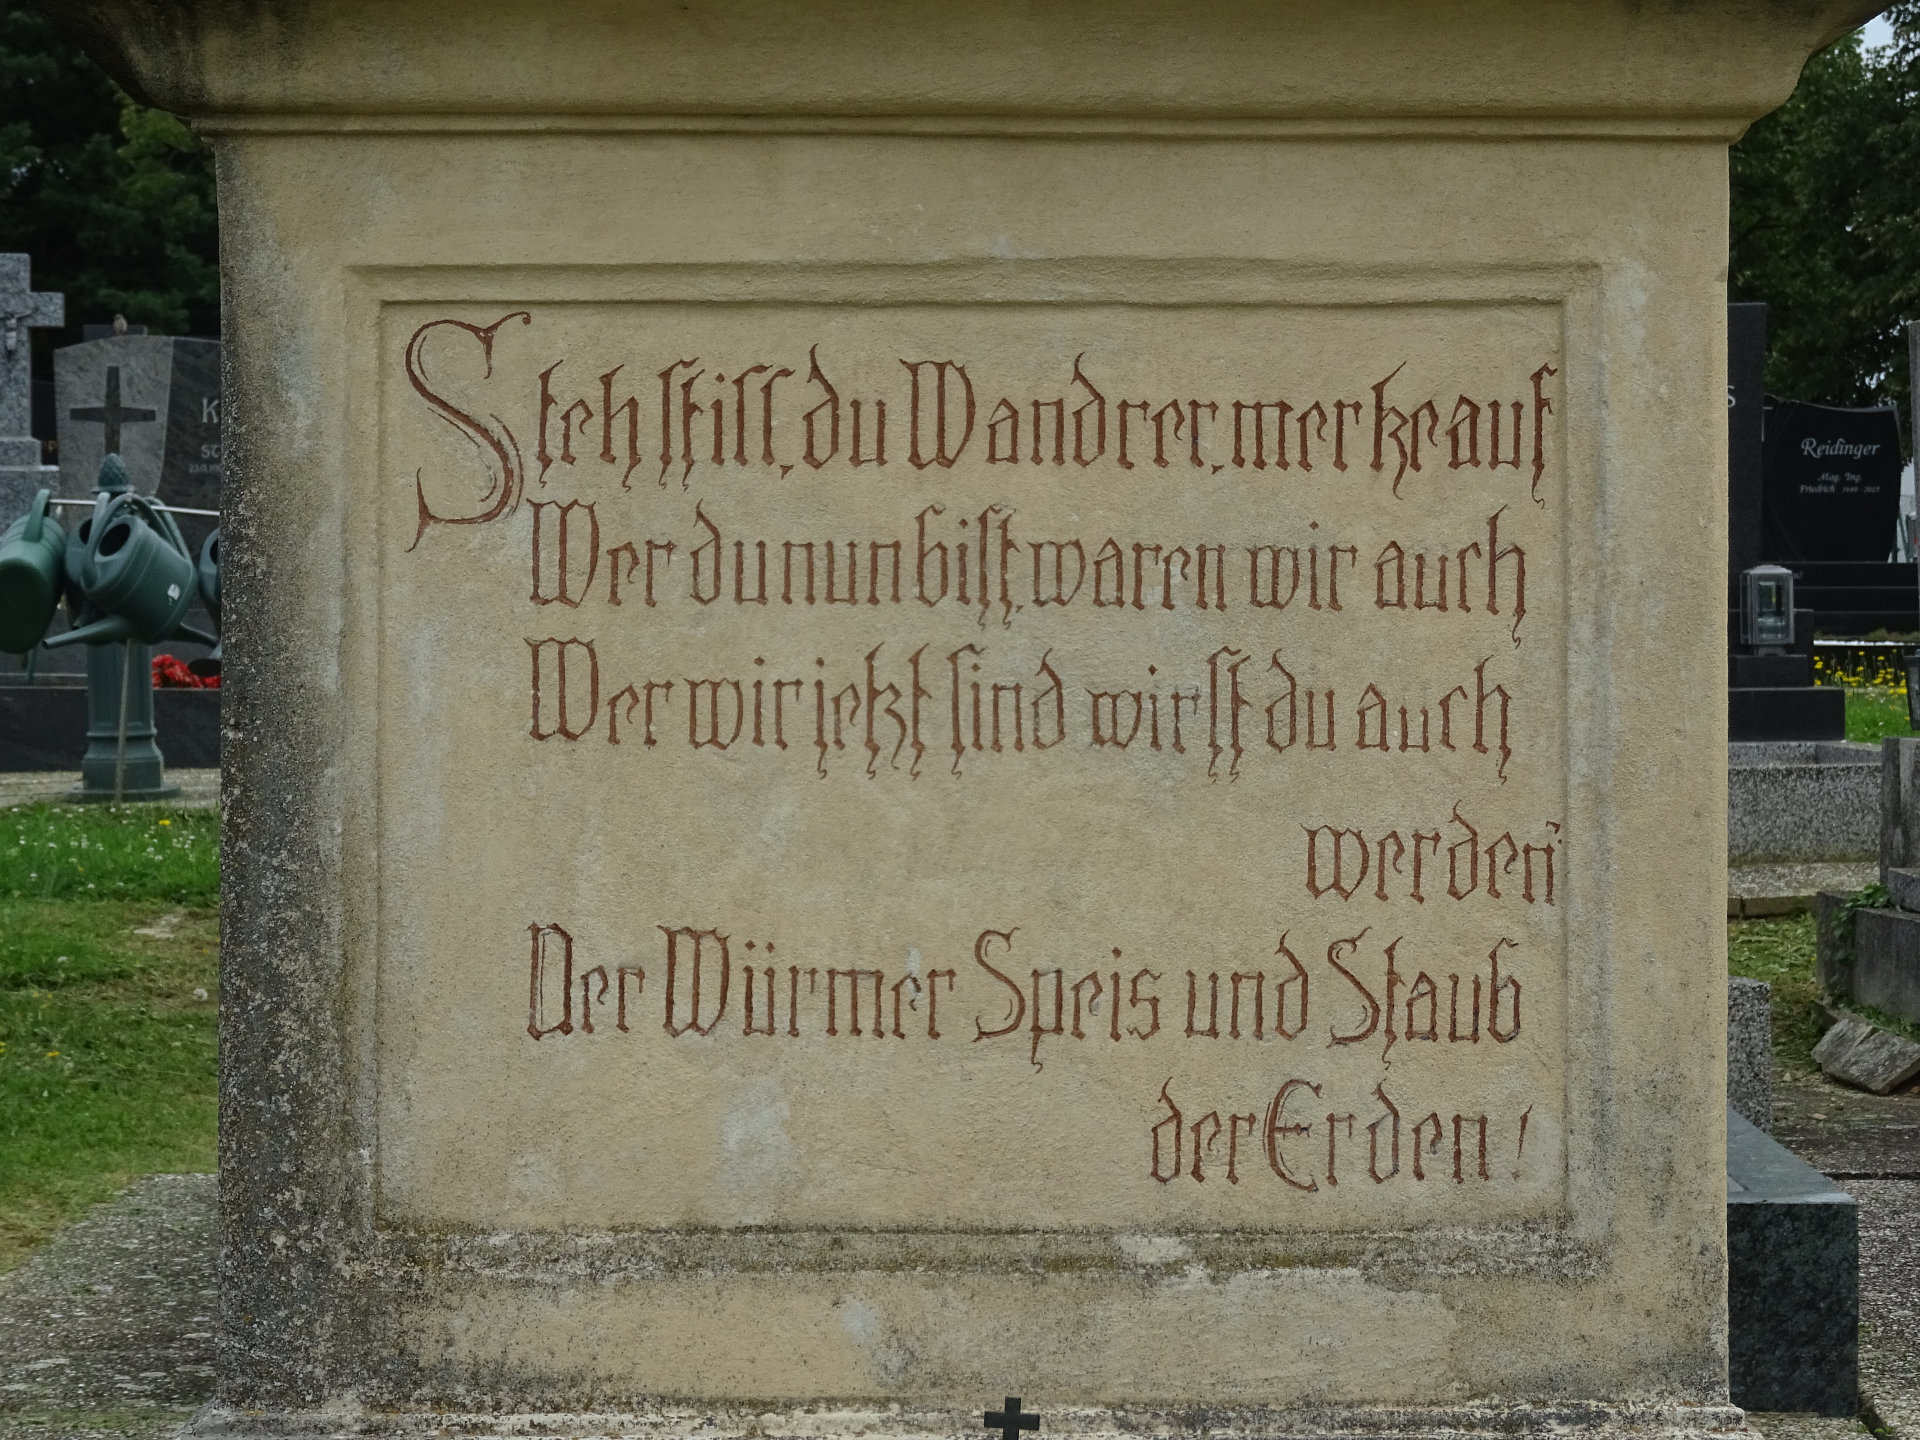 Steh still, du Wandrer, merke auf
Wer du nun bist, waren wir auch
Wer wir jetzt sind wirst du auch
werden
Der Würmer Speis und Staub
der Erden!
Reidinger
Mag. Ing.
Friedrich
K